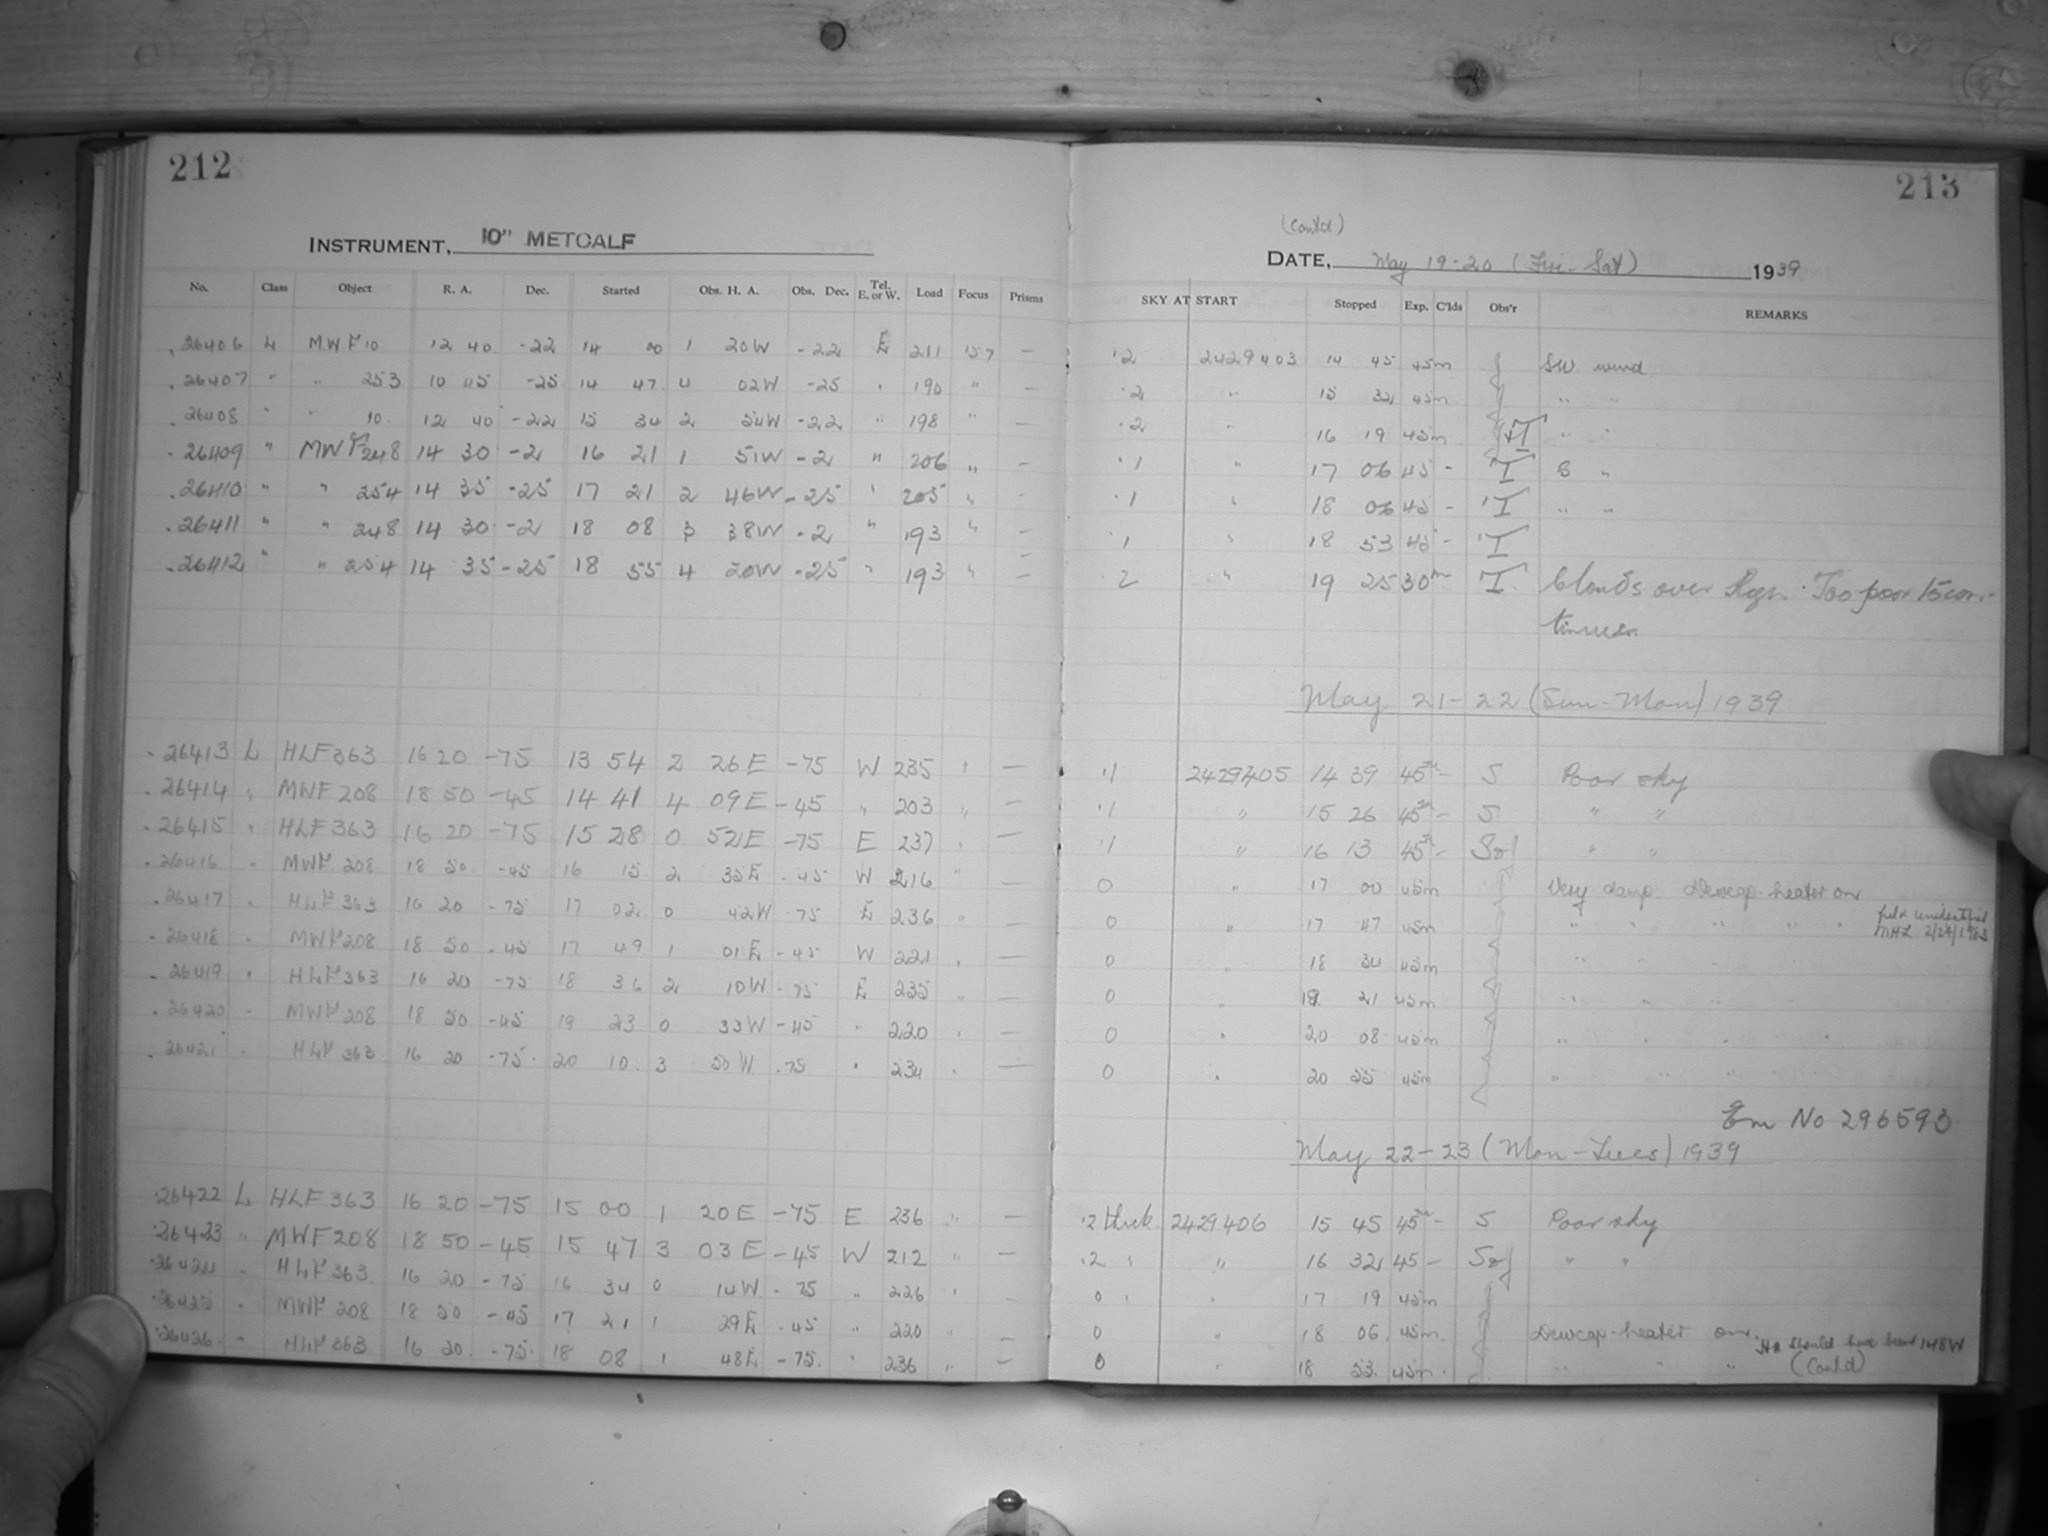 212
INSTRUMENT, 10" METCALF
No. Class Object R. A. Dec. Started Obs. H. A. Obs. Dec. Tel. E. or W. Load Focus Prisms
26406 L MWF 10 12 40 -22 14 00 1 20W -22 E 211 157 —
26407 " " 253 10 45 -25 14 47 4 02W -25 " 190 " —
26408 " " 10 12 40 -22 15 34 2 54W -22 " 198 " —
26409 " MWF 248 14 30 -2 16 21 1 51W -2 " 206 " —
26410 " " 254 14 35 -25 17 21 2 46W -25 " 205 " —
26411 " " 248 14 30 -2 18 08 3 38W -2 " 193 " —
26412 " " 254 14 35 -25 18 55 4 20W -25 " 193 " —
26413 L HLF 363 16 20 -75 13 54 2 26E -75 W 235 " —
26414 " MWF 208 18 50 -45 14 41 4 09E -45 " 203 " —
26415 " HLF 363 16 20 -75 15 28 0 52E -75 E 237 " —
26416 " MWF 208 18 50 -45 16 15 2 35E -45 W 216 " —
26417 " HLF 363 16 20 -75 17 02 0 42W -75 E 236 " —
26418 " MWF 208 18 50 -45 17 49 1 01E -45 W 221 " —
26419 " HLF 363 16 20 -75 18 36 2 10W -75 E 235 " —
26420 " MWF 208 18 50 -45 19 23 0 33W -45 " 220 " —
26421 " HLF 363 16 20 -75 20 10 3 50W -75 " 234 " —
26422 L HLF 363 16 20 -75 15 00 1 20E -75 E 236 " —
26423 " MWF 208 18 50 -45 15 47 3 03E -45 W 212 " —
26424 " HLF 363 16 20 -75 16 34 0 14W -75 " 226 " —
26425 " MWF 208 18 50 -45 17 21 1 29E -45 " 220 " —
26426 " HLF 363 16 20 -75 18 08 1 48E -75 " 236 " —
213
(Cont'd)
DATE, May 19-20 (Fri-Sat) 1939
SKY AT START Stopped Exp. C'lds Obs'r REMARKS
.2 2429403 14 45 45m SW wind
.2 " 15 32 45m " "
.2 " 16 19 45m " "
.1 " 17 06 45 - T S "
.1 " 18 06 45 - T " "
.1 " 18 53 45 - T
.2 " 19 25 30m T. Clouds over Regn. Too poor to con-
tinue.
May 21-22 (Sun-Mon) 1939
.1 2429405 14 39 45m - S Poor sky
.1 " 15 26 45m - S " "
.1 " 16 13 45m - " "
0 " 17 00 45m Very damp Dewcap-heater on
0 " 17 47 45m " " " " " field unidentified
MHL
0 " 18 34 45m " "
0 " 19 21 45m " " " "
0 " 20 08 45m " " " "
0 " 20 55 45m " " " "
Em No 296593
May 22-23 (Mon-Tues) 1939
.2 thick 2429406 15 45 45m - S Poor sky
.2 " " 16 32 45 - " "
0 " " 17 19 45m
0 " 18 06 45m Dewcap-heater on. HA should have been 148W
0 " 18 53 45m " " " (Cont'd)